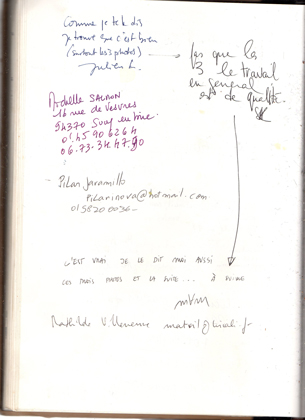 Comme je te le dis
je trouve que c'est bien
(surtout les 3 photos)
Julien L.
pas que les
3 le travail
en général
est de qualité.
SK
SALMON
16 rue de Vesvres
94370 Sucy en Brie
01.45 90 62 64
06.73.34.47.90
Pilar Jaramillo
pilarinova@hotmail.com
01 58 20 00 36
C'EST VRAI JE LE DIT MOI AUSSI
CES TROIS PHOTOS ET LA SUITE... À
Mathilde